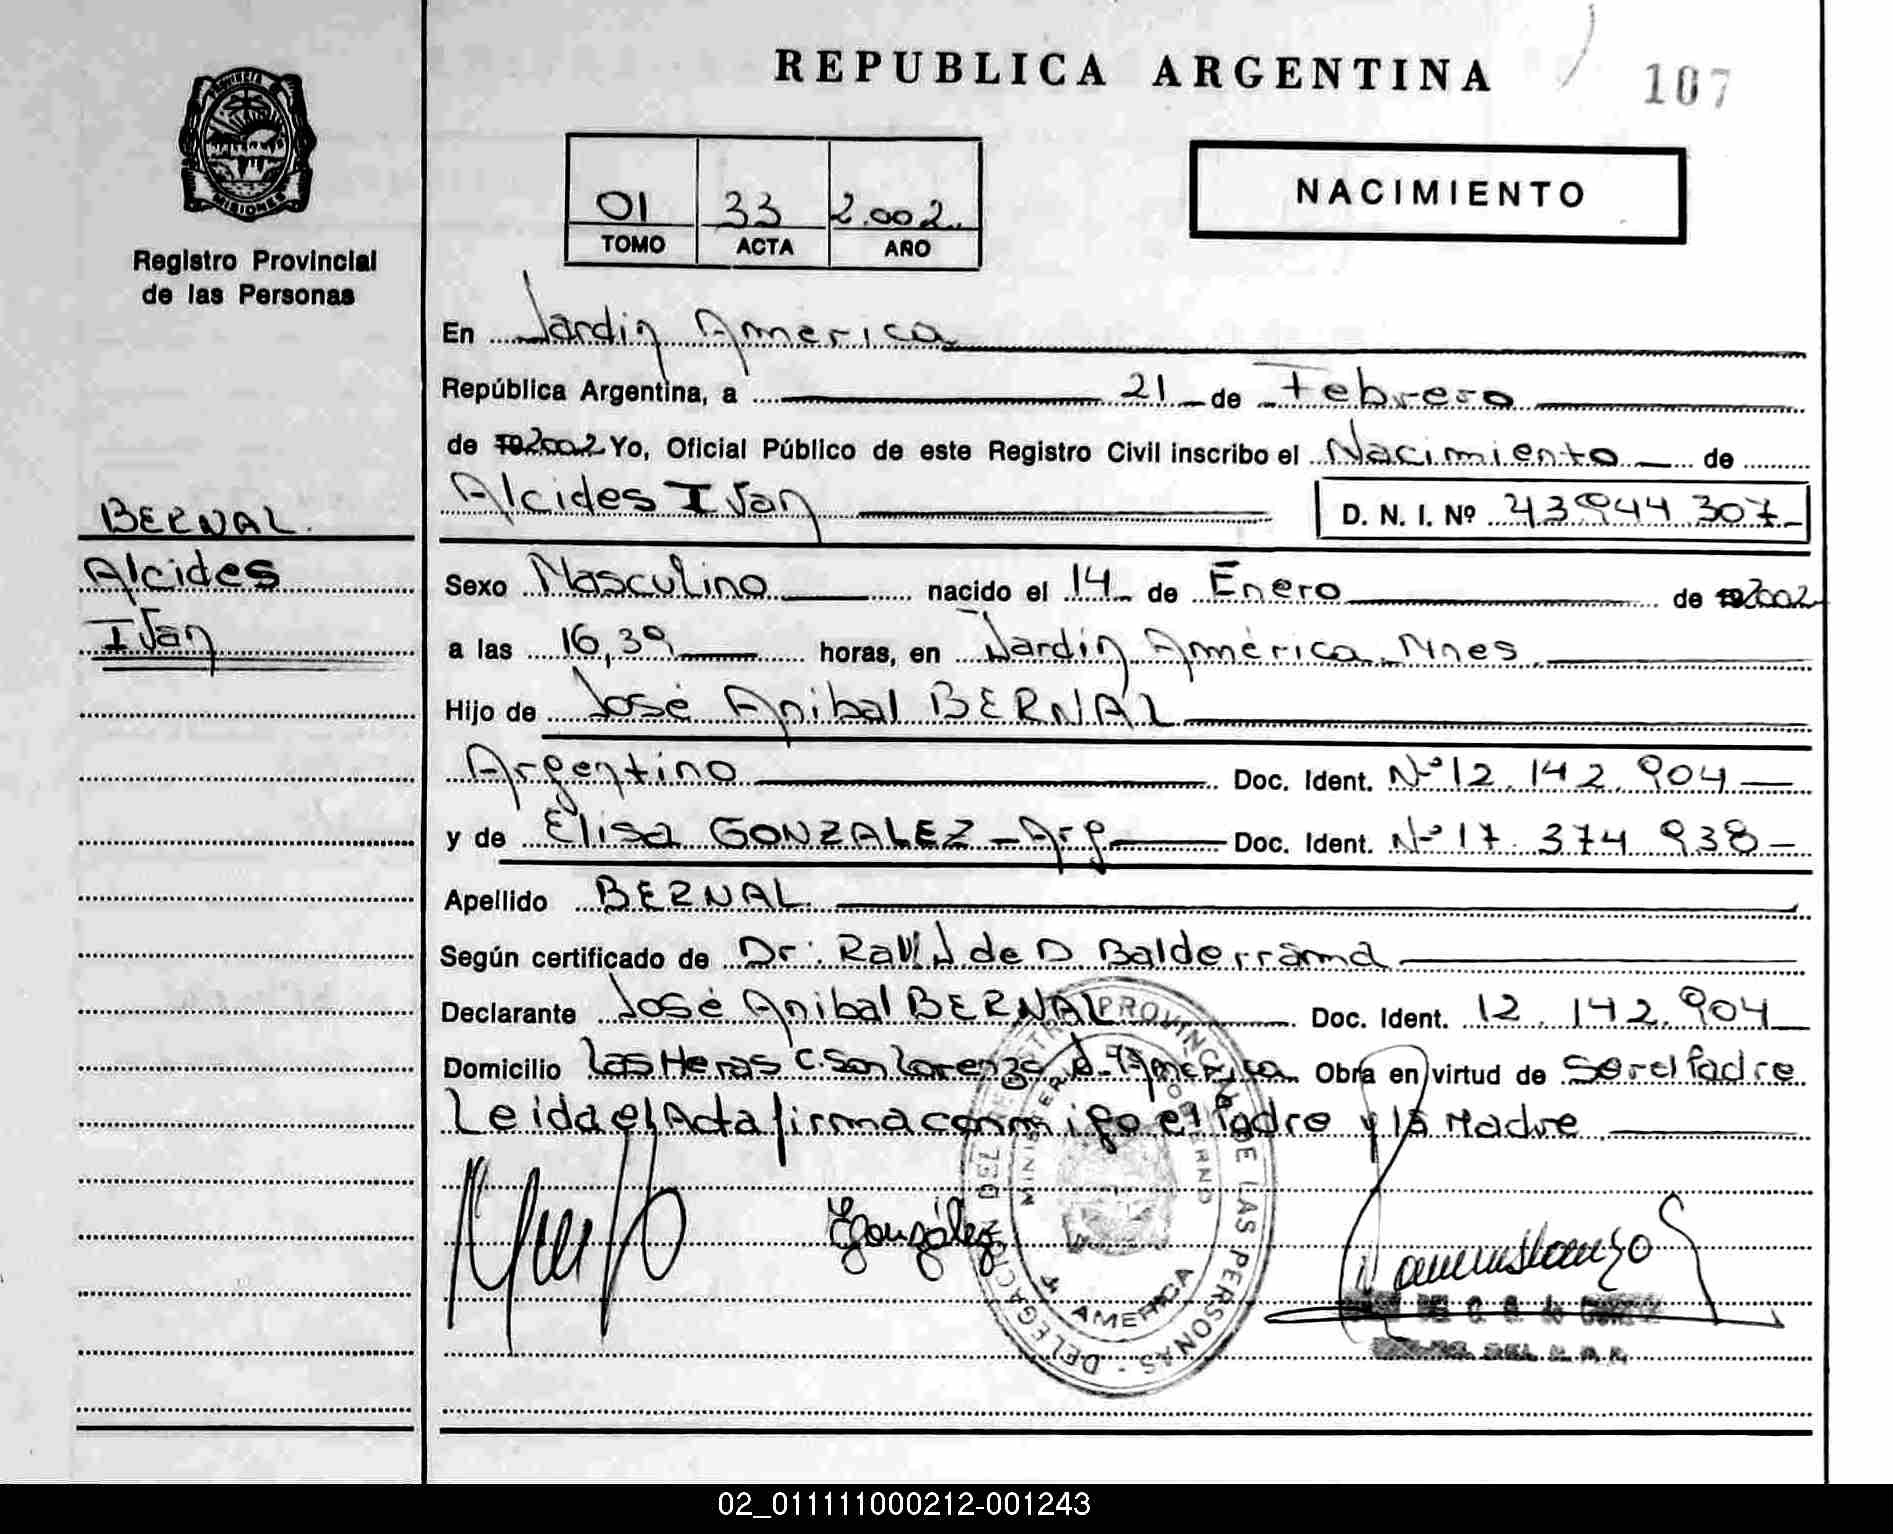 REPUBLICA ARGENTINA
107
PROVINCIA
MISIONES
Registro Provincial
de las Personas
01 33 2.002.
TOMO ACTA AÑO
NACIMIENTO
En Jardin America
República Argentina, a 21 de Febrero
de 2002 Yo, Oficial Público de este Registro Civil inscribo el Nacimiento de
Alcides Ivan D. N. I. Nº 43944307
BERNAL.
Alcides
Ivan
Sexo Masculino nacido el 14 de Enero de 2002
a las 16,39 horas, en Jardin América Mnes
Hijo de José Anibal BERNAL
Argentino Doc. Ident. Nº 12.142.904
y de Elisa GONZALEZ - Arg Doc. Ident. Nº 17.374.938
Apellido BERNAL.
Según certificado de Dr. de D Balderrama
Declarante José Anibal BERNAL Doc. Ident. 12.142.904
Domicilio Las Heras C. San Lorenzo J. America Obra en virtud de Ser el Padre
Leida el Acta firma conmigo el Padre y la Madre
EGonzález
REGISTRO PROVINCIAL DE LAS PERSONAS - DELEGACION
MINISTERIO GOBIERNO
J. AMERICA
02_011111000212-001243